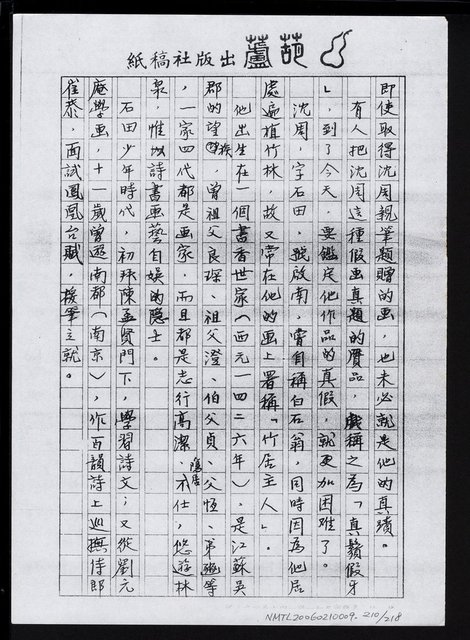 葫蘆出版社稿紙
即使取得沈周親筆題贈的画，也未必就是他的真蹟。
有人把沈周這種假画真題的贗品，戲稱之為「真鬚假牙
」，到了今天，要鑑定他作品的真假，就更加困難了。
沈周，字石田，號啟南，嘗自稱白石翁，同時因為他居
處遍植竹林，故又常在他的画上署稱「竹居主人」。
他出生在一個書香世家（西元一四二六年），是江蘇吳
郡的望族，曾祖父良琛、祖父澄、伯父貞、父恆、弟豳等
，一家四代都是画家，而且都是志行高潔、隱居不仕，悠遊林
泉，惟以詩書画藝自娛的隱士。
石田少年時代，初拜陳孟賢門下，學習詩文；又從劉元
庵學画，十一歲曾遊南都（南京），作百韻詩上巡撫侍郎
崔恭，面試鳳凰台賦，援筆立就。
NMTL20060210009. 210/218